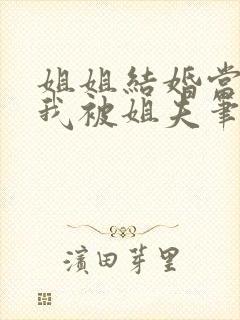 姐姐結婚當
我被姐夫筆
濱田芽里